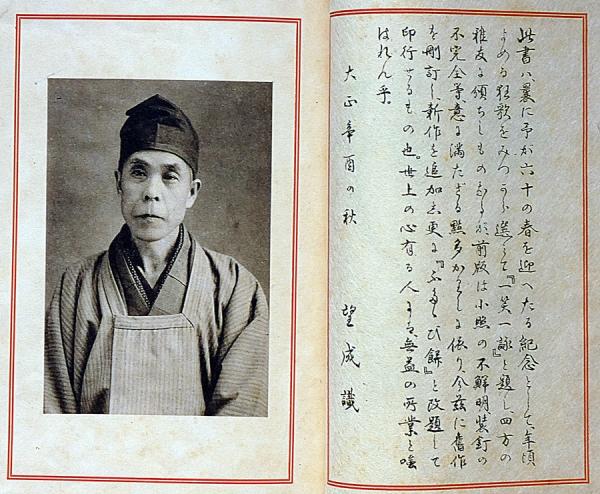 此書ハ、曩に予が六十の春を迎へたる紀念として、年頃
よめる狂歌をみづから選びて『一笑一詠』と題し、四方の
雅友に頒ちしものなるが、前版は小照の不鮮明、装釘の
不完全等、意に満たざる點多かりしに依り、今茲に舊作
を刪訂し、新作を追加し、更に『ふたゝび餅』と改題して
印行せるもの也。世上の心有る人よりは無益の所業と嗤
はれん乎。
大正辛酉の秋 望成識